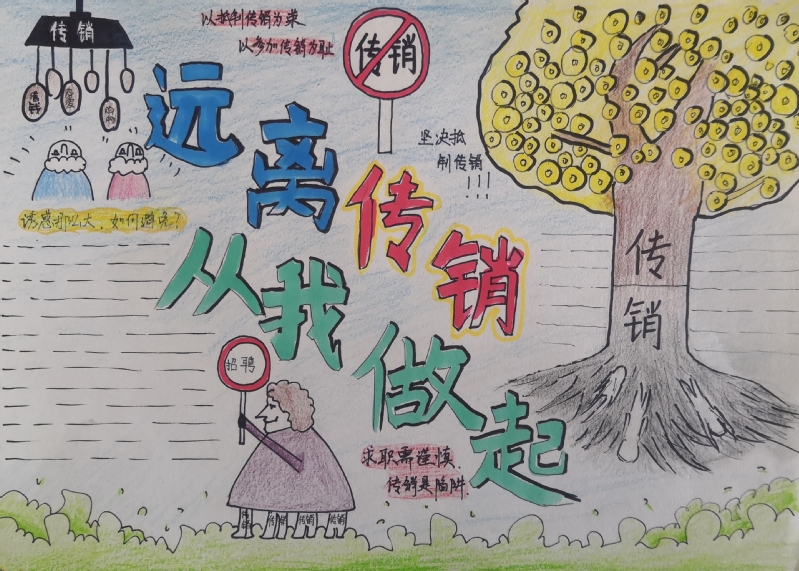 传销
赚钱
以抵制传销为荣
以参加传销为耻
传销
坚决抵
制传销
!!!
远离传销
从我做起
诱惑那么大，如何避免？
传
销
招聘
求职需谨慎，
传销是陷阱
传销 传销 传销 传销